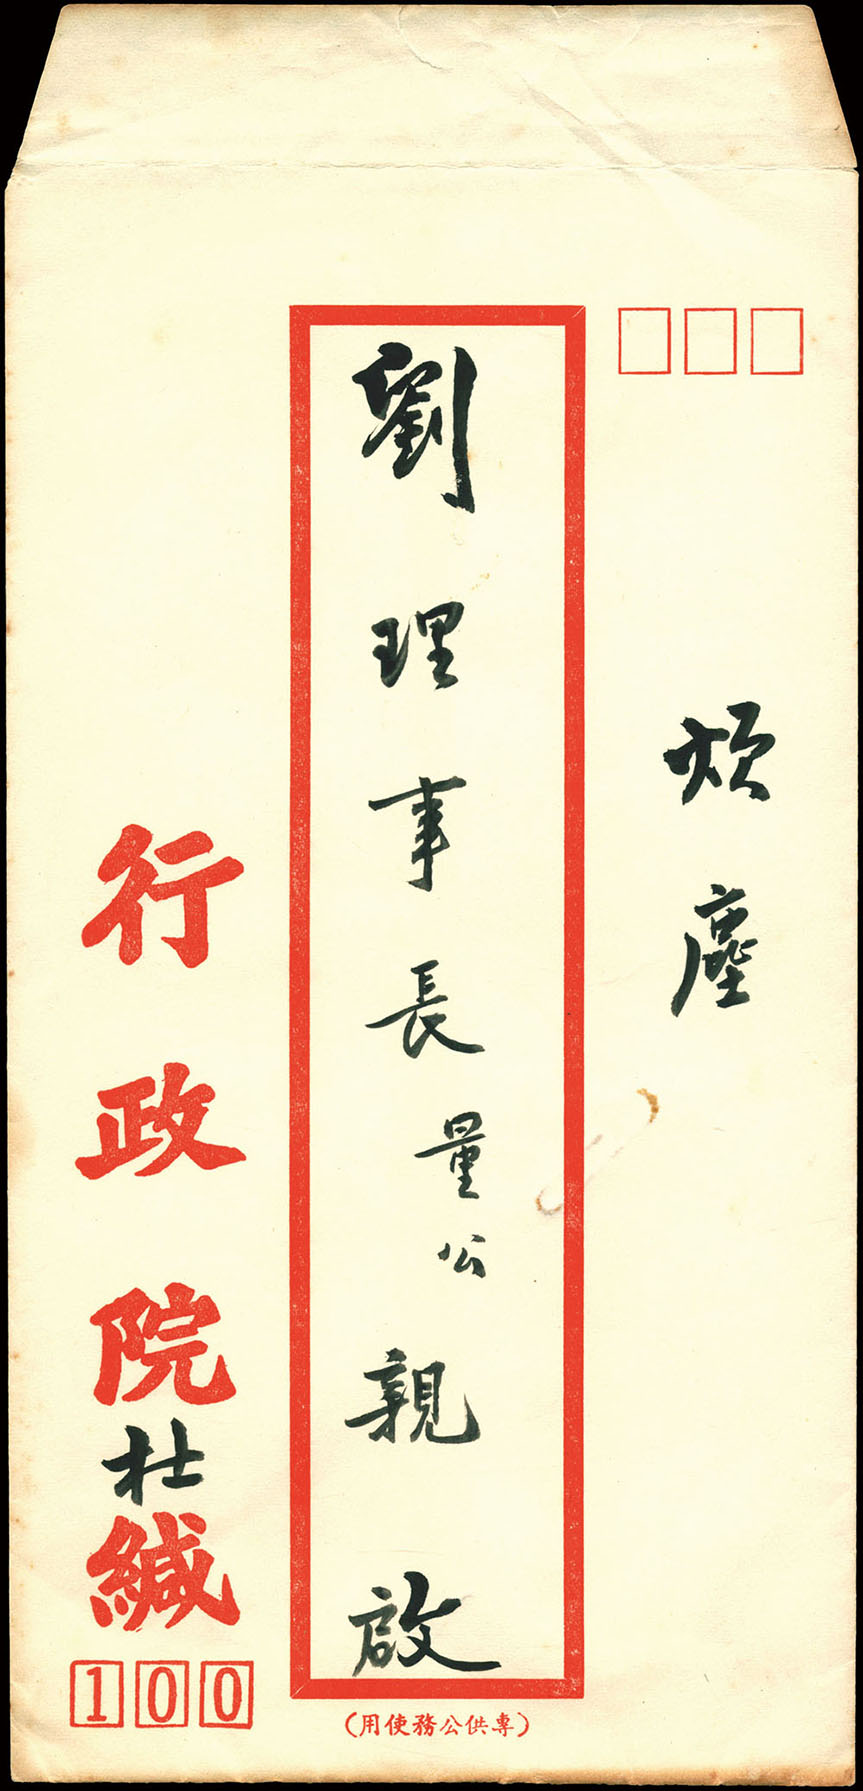 煩塵
劉理事長量公親啟
行政院杜緘
100
(專供公務使用)